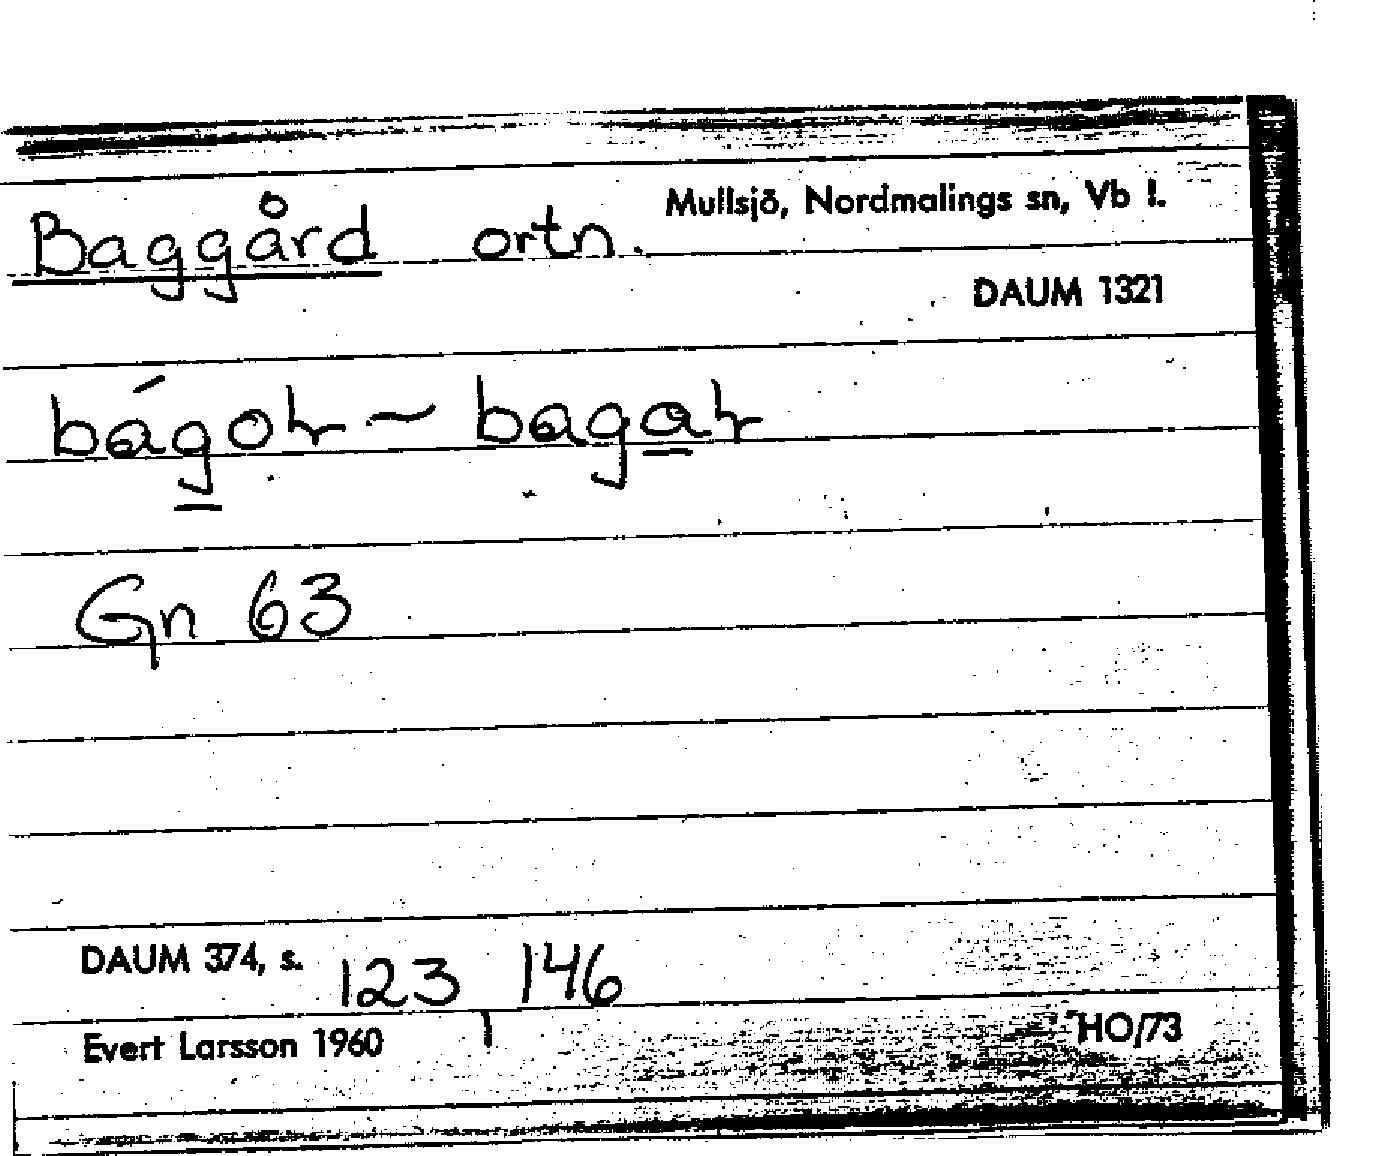 Baggård ortn. Mullsjö, Nordmalings sn, Vb l.
DAUM 1321
Gn 63
DAUM 374, s. 123, 146
Evert Larsson 1960 HO/73